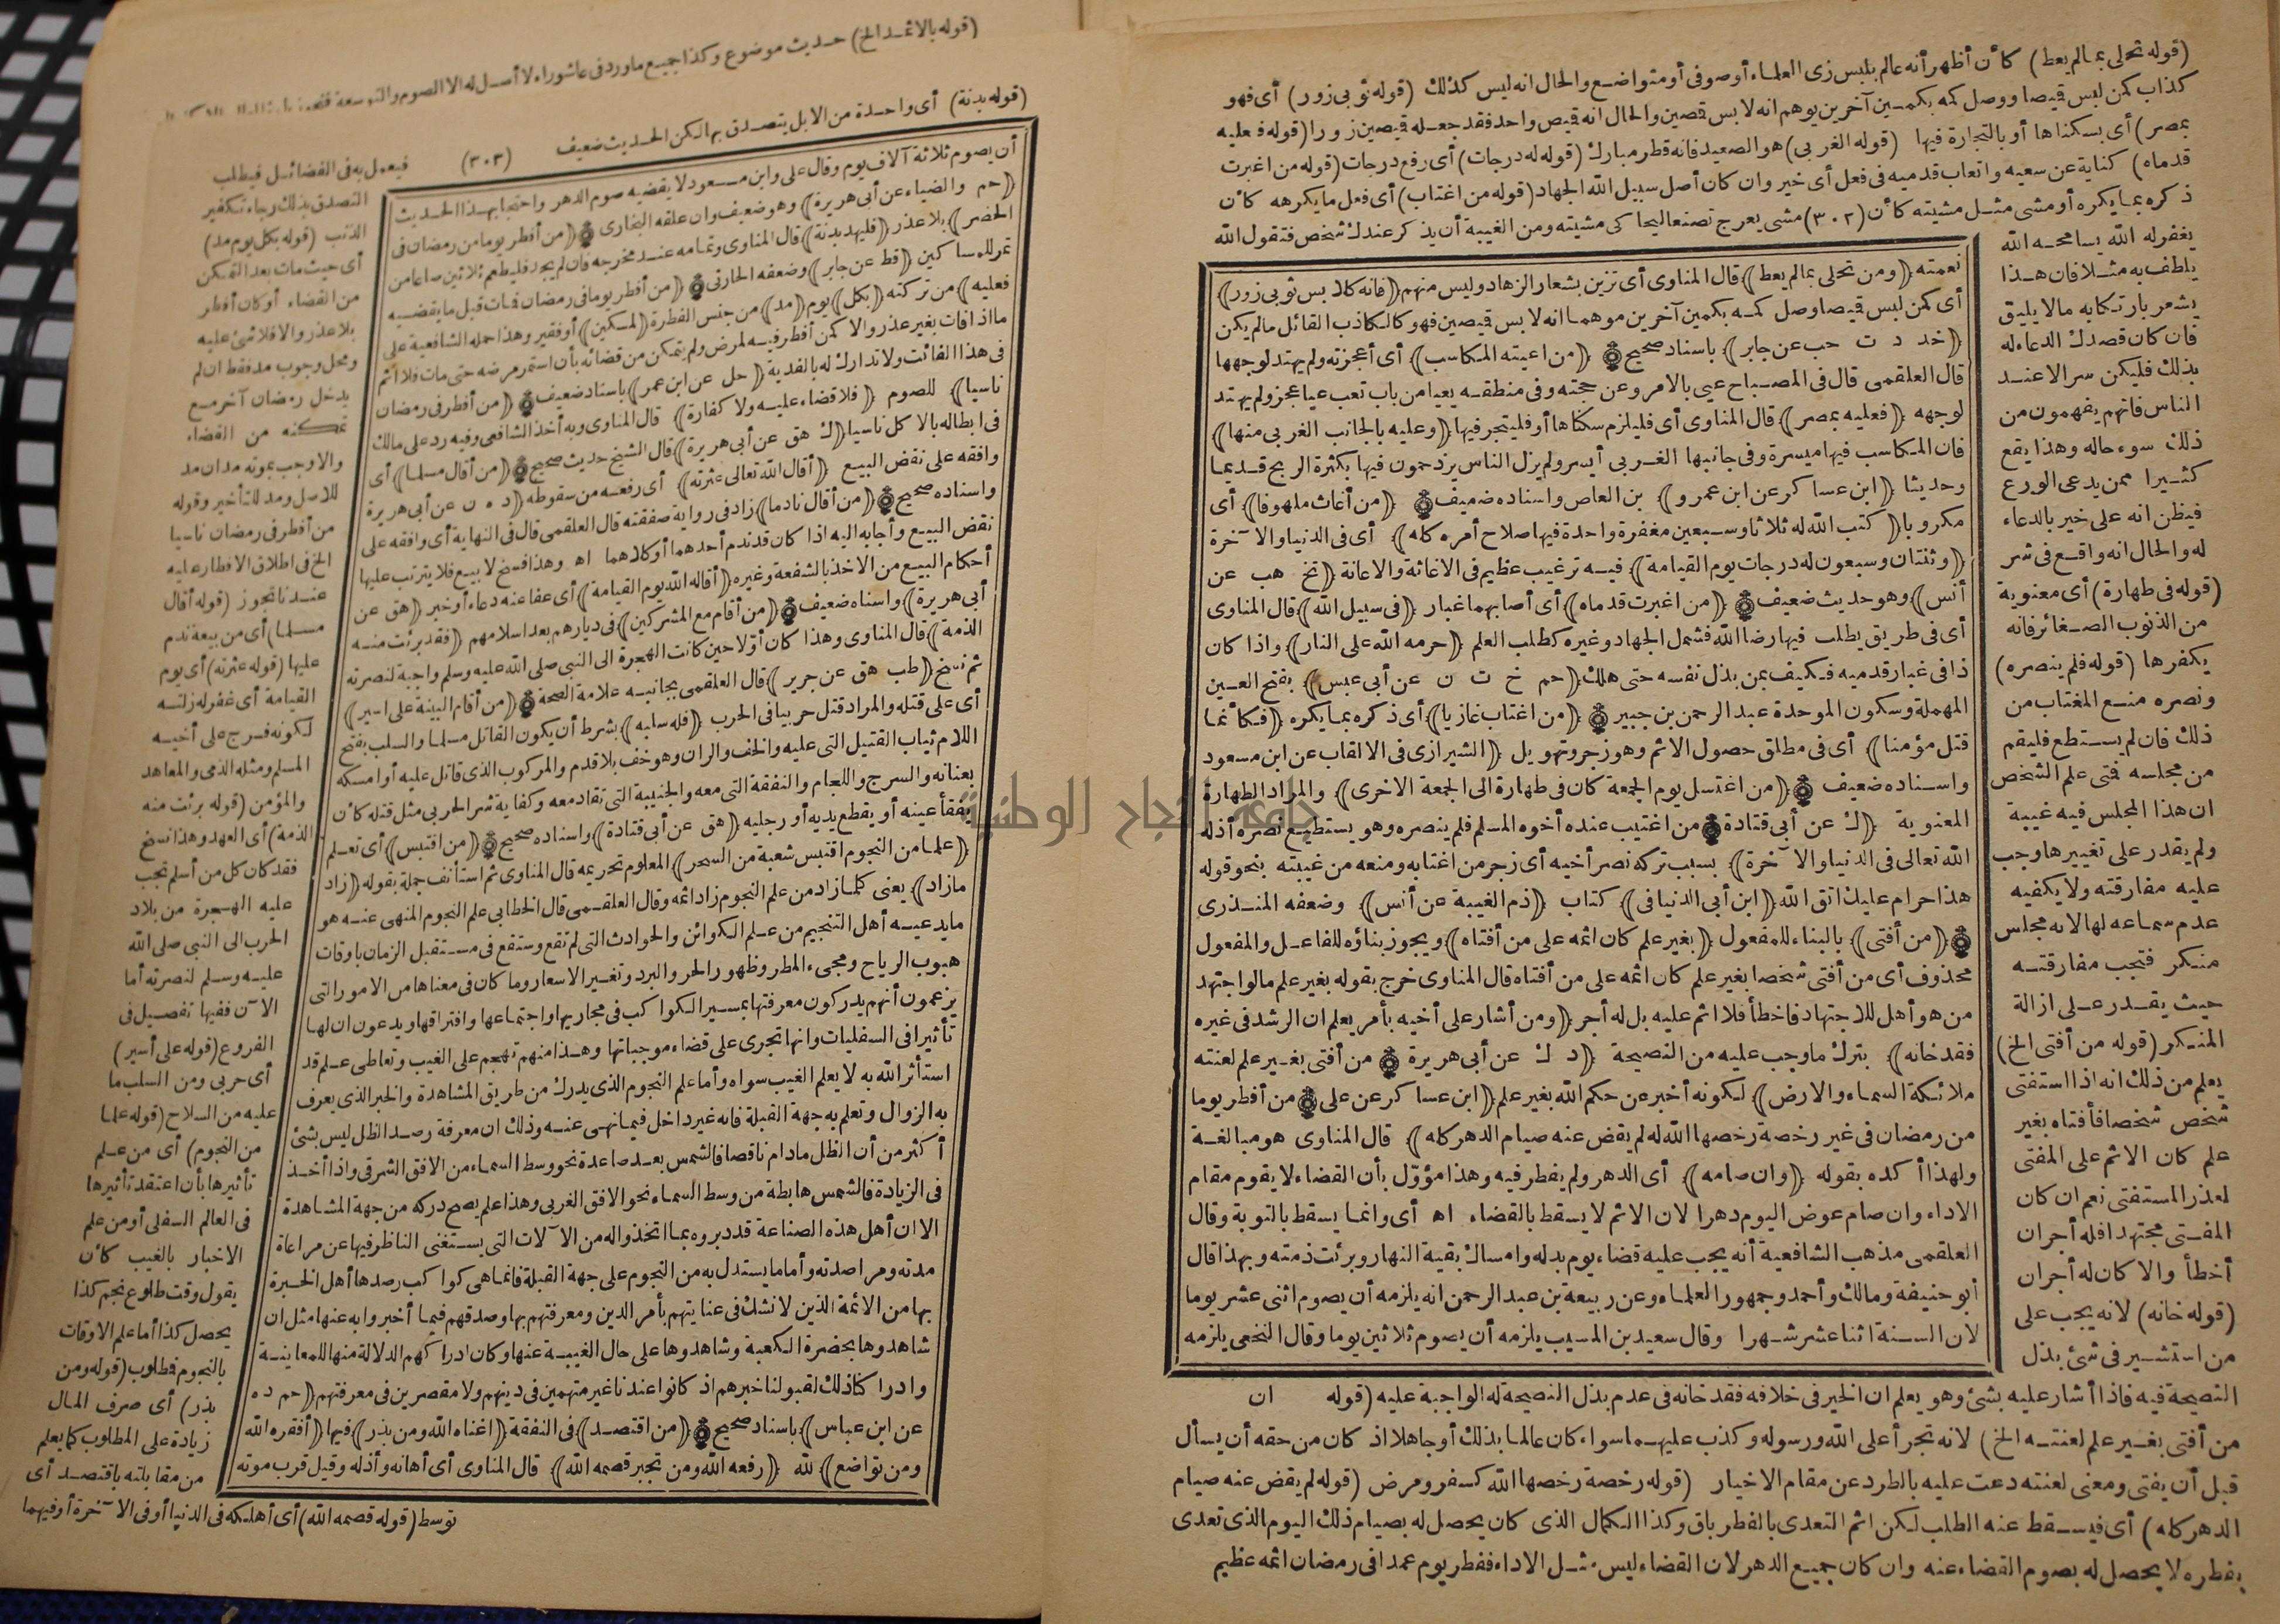 (قوله تحلى بمالم يعط) كأن أظهر أنه عالم بلبس زى العلماء أوصوفى أو متواضع والحال انه ليس كذلك (قوله ثوبى زور) أى فهو
كذاب كمن لبس قيصا ووصل كمه بكمين آخرين يوهم انه لابس قصين والحال انه قيص واحد فقد جعله قيصين زورا (قوله فعليه
بمصر) أى بسكناها أو بالتجارة فيها (قوله الغربى) هو الصعيد فانه قطر مبارك (قوله له درجات) أى رفع درجات (قوله من اغبرت
قدماه) كناية عن سعيه واتعاب قدميه فى فعل أى خير وان كان أصل سبيل الله الجهاد (قوله من اغتاب) أى فعل مايكرهه كأن
ذكره بمايكره أومشى مثل مشيته كأن (٣٠٢) مشى يعرج تصنعا ليحاكى مشيته ومن الغيبة أن يذكر عندك شخص فتقول الله
يغفرله الله يسامحه الله
يلطف به مثلا فان هذا
يشعر بارتكابه مالا يليق
فان كان قصدك الدعاءله
بذلك فليكن سرا لاعند
الناس فانهم يفهمون من
ذلك سوء حاله وهذا يقع
كثيرا ممن يدعى الورع
فيظن انه على خير بالدعاء
له والحال انه واقع فى شر
(قوله فى طهارة) أى معنوية
من الذنوب الصغائر فانه
يكفرها (قوله فلم ينصره)
ونصره منع المغتاب من
ذلك فان لم يستطع فليقم
من مجلسه فتى علم الشخص
ان هذا المجلس فيه غيبة
ولم يقدر على تغييرها وجب
عليه مفارقته ولا يكفيه
عدم سماعه لها لانه مجلس
منكر فتجب مفارقته
حيث يقدر على ازالة
المنكر (قوله من أفتى الخ)
يعلم من ذلك انه اذا استفتى
شخص شخصا فأفتاه بغير
علم كان الاثم على المفتى
لعذر المستفتى نعم ان كان
المفتى مجتهدا فله أجران
أخطأ والا كان له أجران
(قوله خانه) لانه يجب على
من استشير فى شئ بذل
نعمته (ومن تحلى بمالم يعط) قال المناوى أى تزين بشعار الزهاد وليس منهم (فانه كلابس ثوبى زور)
أى كمن لبس قيصا وصل كمه بكمين آخرين موهما انه لابس قيصين فهو كالكاذب القائل مالم يكن
(خد د ت حب عن جابر) باسناد صحيح (من اعيته المكاسب) أى أعجزته ولم يهتد لوجهها
قال العلقمى قال فى المصباح عيى بالامر وعن حجته وفى منطقه يعيا من باب تعب عيا عجز ولم يهتد
لوجهه (فعليه بمصر) قال المناوى أى فليلزم سكناها أو فليتجر فيها (وعليه بالجانب الغربى منها)
فان المكاسب فيها ميسرة وفى جانبها الغربى أيسر ولم يزل الناس يزدحمون فيها بكثرة الربح قديما
وحديثا (ابن عساكر عن ابن عمرو) بن العاص واسناده ضعيف (من أغاث ملهوفا) أى
مكروبا (كتب الله له ثلاثا وسبعين مغفرة واحدة فيها صلاح أمره كله) أى فى الدنيا والآخرة
(وثنتان وسبعون له درجات يوم القيامة) فيه ترغيب عظيم فى الاغاثة والاعانة (تخ هب عن
أنس) وهو حديث ضعيف (من اغبرت قدماه) أى أصابهما غبار (فى سبيل الله) قال المناوى
أى فى طريق يطلب فيها رضا الله فشمل الجهاد وغيره كطلب العلم (حرمه الله على النار) واذا كان
ذا فى غبار قدميه فكيف بمن بذل نفسه حتى هلك (حم خ ت ن عن أبى عبس) بفتح العين
المهملة وسكون الموحدة عبد الرحمن بن جبير (من اغتاب غازيا) أى ذكره بما يكره (فكأنما
قتل مؤمنا) أى فى مطلق حصول الاثم وهو زجر وتهويل (الشيرازى فى الالقاب عن ابن مسعود
واسناده ضعيف (من اغتسل يوم الجمعة كان فى طهارة الى الجمعة الاخرى) والمراد الطهارة
المعنوية (ك عن أبى قتادة من اغتيب عنده أخوه المسلم فلم ينصره وهو يستطيع نصره أذله
الله تعالى فى الدنيا والآخرة) بسبب تركه نصر أخيه أى زجر من اغتابه ومنعه من غيبته بنحو قوله
هذا حرام عليك اتق الله (ابن أبى الدنيا فى) كتاب (ذم الغيبة عن أنس) وضعفه المنذرى
(من أفتى) بالبناء للمفعول (بغير علم كان اثمه على من أفتاه) ويجوز بناؤه للفاعل والمفعول
محذوف أى من أفتى شخصا بغير علم كان اثمه على من أفتاه قال المناوى خرج بقوله بغير علم مالو اجتهد
من هو أهل للاجتهاد فاخطأ فلا اثم عليه بل له أجر (ومن أشار على أخيه بأمر يعلم ان الرشد فى غيره
فقد خانه) بترك ماوجب عليه من النصيحة (د ك عن أبى هريرة من أفتى بغير علم لعنته
ملائكة السماء والارض) لكونه أخبر عن حكم الله بغير علم (ابن عساكر عن على من أفطر يوما
من رمضان فى غير رخصة رخصها الله له لم يقض عنه صيام الدهر كله) قال المناوى هو مبالغة
ولهذا أكده بقوله (وان صامه) أى الدهر ولم يفطر فيه وهذا مؤوّل بأن القضاء لا يقوم مقام
الاداء وان صام عوض اليوم دهرا لان الاثم لا يسقط بالقضاء اه أى وانما يسقط بالتوبة وقال
العلقمى مذهب الشافعية أنه يجب عليه قضاء يوم بدله وامساك بقية النهار وبرئت ذمته وبهذا قال
أبو حنيفة ومالك وأحمد وجمهور العلماء وعن ربيعة بن عبد الرحمن انه يلزمه أن يصوم اثنى عشر يوما
لان السنة اثنا عشر شهرا وقال سعيد بن المسيب يلزمه أن يصوم ثلاثين يوما وقال النخعى يلزمه
النصيحة فيه فاذا أشار عليه بشئ وهو يعلم ان الخير فى خلافه فقد خانه فى عدم بذل النصيحة له الواجبة عليه (قوله ان
من أفتى بغير علم لعنته الخ) لانه تجرأ على الله ورسوله وكذب عليهما سواء كان عالما بذلك أو جاهلا اذ كان من حقه أن يسأل
قبل أن يفتى ومعنى لعنته دعت عليه بالطرد عن مقام الاخيار (قوله رخصة رخصها الله كسفر ومرض (قوله لم يقض عنه صيام
الدهر كله) أى فيسقط عنه الطلب لكن اثم التعدى بالفطر باق وكذا الكمال الذى كان يحصل له بصيام ذلك اليوم الذى تعدى
بفطره لا يحصل له بصوم القضاء عنه وان كان جميع الدهر لان القضاء ليس مثل الاداء ففطر يوم عمدا فى رمضان اثمه عظيم
(قوله بالاثمد الخ) حديث موضوع وكذا جميع ماورد فى عاشوراء لا أصل له الا الصوم والتوسعة
(قوله بدنة) أى واحدة من الابل يتصدق بها لكن الحديث ضعيف (٣٠٣) فيعمل به فى الفضائل فيطلب
أن يصوم ثلاثة آلاف يوم وقال على وابن مسعود لا يقضيه صوم الدهر واحتجا بهذا الحديث
(حم والضياء عن أبى هريرة) وهو ضعيف وان علقه البخارى (من أفطر يوما من رمضان فى
الحضر) بلا عذر (فليهد بدنة) قال المناوى وتمامه عند مخرجه فان لم يجد فليطعم ثلاثين صاعا من
تمر للمساكين (قط عن جابر) وضعفه الحارثى (من أفطر يوما فى رمضان فمات قبل ما يقضيه
فعليه) من تركته (بكل) يوم (مد) من جنس الفطرة (لمسكين) أو فقير وهذا حمله الشافعية على
ما اذا فات بغير عذر والا كمن أفطر فيه لمرض ولم يتمكن من قضائه بأن استمر مرضه حتى مات فلا اثم
فى هذا الفائت ولا تدارك له بالفدية (حل عن ابن عمر) باسناد ضعيف (من أفطر فى رمضان
ناسيا) للصوم (فلا قضاء عليه ولا كفارة) قال المناوى وبه أخذ الشافعى وفيه رد على مالك
فى ابطاله بالاكل ناسيا (ك هق عن أبى هريرة) قال الشيخ حديث صحيح (من أقال مسلما) أى
وافقه على نقض البيع (أقال الله تعالى عثرته) أى رفعه من سقوطه (د ه ن عن أبى هريرة
واسناده صحيح (من أقال نادما) زاد فى رواية صفقته قال العلقمى قال فى النهاية أى وافقه على
نقض البيع وأجابه اليه اذا كان قد ندم أحدهما أو كلاهما اه وهذا فسخ لا بيع فلا يترتب عليها
أحكام البيع من الاخذ بالشفعة وغيره (أقاله الله يوم القيامة) أى عفا عنه دعاء أو خبر (هق عن
أبى هريرة) واسناه ضعيف (من أقام مع المشركين) فى ديارهم بعد اسلامهم (فقد برئت منه
الذمة) قال المناوى وهذا كان أوّلا حين كانت الهجرة الى النبى صلى الله عليه وسلم واجبة لنصرته
ثم نسخ (طب هق عن جرير) قال العلقمى بجانبه علامة الصحة (من أقام البينة على اسير)
أى على قتله والمراد قتل حربيا فى الحرب (فله سلبه) بشرط أن يكون القاتل مسلما والسلب بفتح
اللام ثياب القتيل التى عليه والخف والران وهو خف بلا قدم والمركوب الذى قاتل عليه أو امسكه
بعنانه والسرج واللجام والنفقة التى معه والجنيبة التى تقاد معه وكفاية شر الحربى مثل قتله كأن
يفقأ عينه أو يقطع يديه أو رجليه (هق عن أبى قتادة) واسناده صحيح (من اقتبس) أى تعلم
(علما من النجوم اقتبس شعبة من السحر) المعلوم تحريمه قال المناوى ثم استأنف جملة بقوله (زاد
مازاد) يعنى كلما زاد من علم النجوم زاد اثمه وقال العلقمى قال الخطابى علم النجوم المنهى عنه هو
مايدعيه أهل التنجيم من علم الكوائن والحوادث التى لم تقع وستقع فى مستقبل الزمان باوقات
هبوب الرياح ومجىء المطر وظهور الحر والبرد وتغير الاسعار وما كان فى معناها من الامور التى
يزعمون أنهم يدركون معرفتها بمسير الكواكب فى مجاريها واجتماعها وافتراقها ويدعون ان لها
تأثيرا فى السفليات وانها تجرى على قضاء موجباتها وهذا منهم تهجم على الغيب وتعاطى علم قد
استأثر الله به لا يعلم الغيب سواه وأما علم النجوم الذى يدرك من طريق المشاهدة والخبر الذى يعرف
به الزوال وتعلم به جهة القبلة فانه غير داخل فيما نهى عنه وذلك ان معرفة رصد الظل ليس بشئ
أكثر من أن الظل مادام ناقصا فالشمس بعد صاعدة نحو وسط السماء من الافق الشرقى واذا أخذ
فى الزيادة فالشمس هابطة من وسط السماء نحو الافق الغربى وهذا علم يصح دركه من جهة المشاهدة
الا ان أهل هذه الصناعة قد دبروه بما اتخذوا له من الآلات التى يستغنى الناظر فيها عن مراعاة
مدته ومراصدته وأما ما يستدل به من النجوم على جهة القبلة فانما هى كواكب رصدها أهل الخبرة
بها من الائمة الذين لا نشك فى عنايتهم بأمر الدين ومعرفتهم بها وصدقهم فيما أخبروا به عنها مثل ان
شاهدوها بحضرة الكعبة وشاهدوها على حال الغيبة عنها وكان ادراكهم الدلالة منها للمعاينة
وادراكنا ذلك لقبولنا خبرهم اذ كانوا عندنا غير متهمين فى دينهم ولا مقصرين فى معرفتهم (حم د ه
عن ابن عباس) باسناد صحيح (من اقتصد) فى النفقة (اغناه الله ومن بذر) فيها (أفقره الله
ومن تواضع) لله (رفعه الله ومن تجبر قصمه الله) قال المناوى أى أهانه وأذله وقيل قرب موته
التصدق بذلك رجاء تكفير
الذنب (قوله بكل يوم مد)
أى حيث مات بعد التمكن
من القضاء أو كان أفطر
بلا عذر والا فلا شئ عليه
ومحل وجوب مد فقط ان لم
يدخل رمضان آخر مع
تمكنه من القضاء
والا وجب بموته مدان مد
للاصل ومد للتأخير وقوله
من أفطر فى رمضان ناسيا
الخ فى اطلاق الافطار عليه
عندنا تجوز (قوله أقال
مسلما) أى من بيعة ندم
عليها (قوله عثرته) أى يوم
القيامة أى غفر له زلته
لكونه فرج على أخيه
المسلم ومثله الذمى والمعاهد
والمؤمن (قوله برئت منه
الذمة) أى العهد وهذا نسخ
فقد كان كل من أسلم تجب
عليه الهجرة من بلاد
الحرب الى النبى صلى الله
عليه وسلم لنصرته أما
الآن ففيها تفصيل فى
الفروع (قوله على أسير)
أى حربى ومن السلب ما
عليه من السلاح (قوله علما
من النجوم) أى من علم
تأثيرها بأن اعتقد تأثيرها
فى العالم السفلى أو من علم
الاخبار بالغيب كأن
يقول وقت طلوع نجم كذا
يحصل كذا أما علم الاوقات
بالنجوم فطلوب (قوله ومن
بذر) أى صرف المال
زيادة على المطلوب كما يعلم
من مقابلته باقتصد أى
توسط (قوله قصمه الله) أى أهلكه فى الدنيا أو فى الآخرة أو فيهما
جامعة النجاح الوطنية